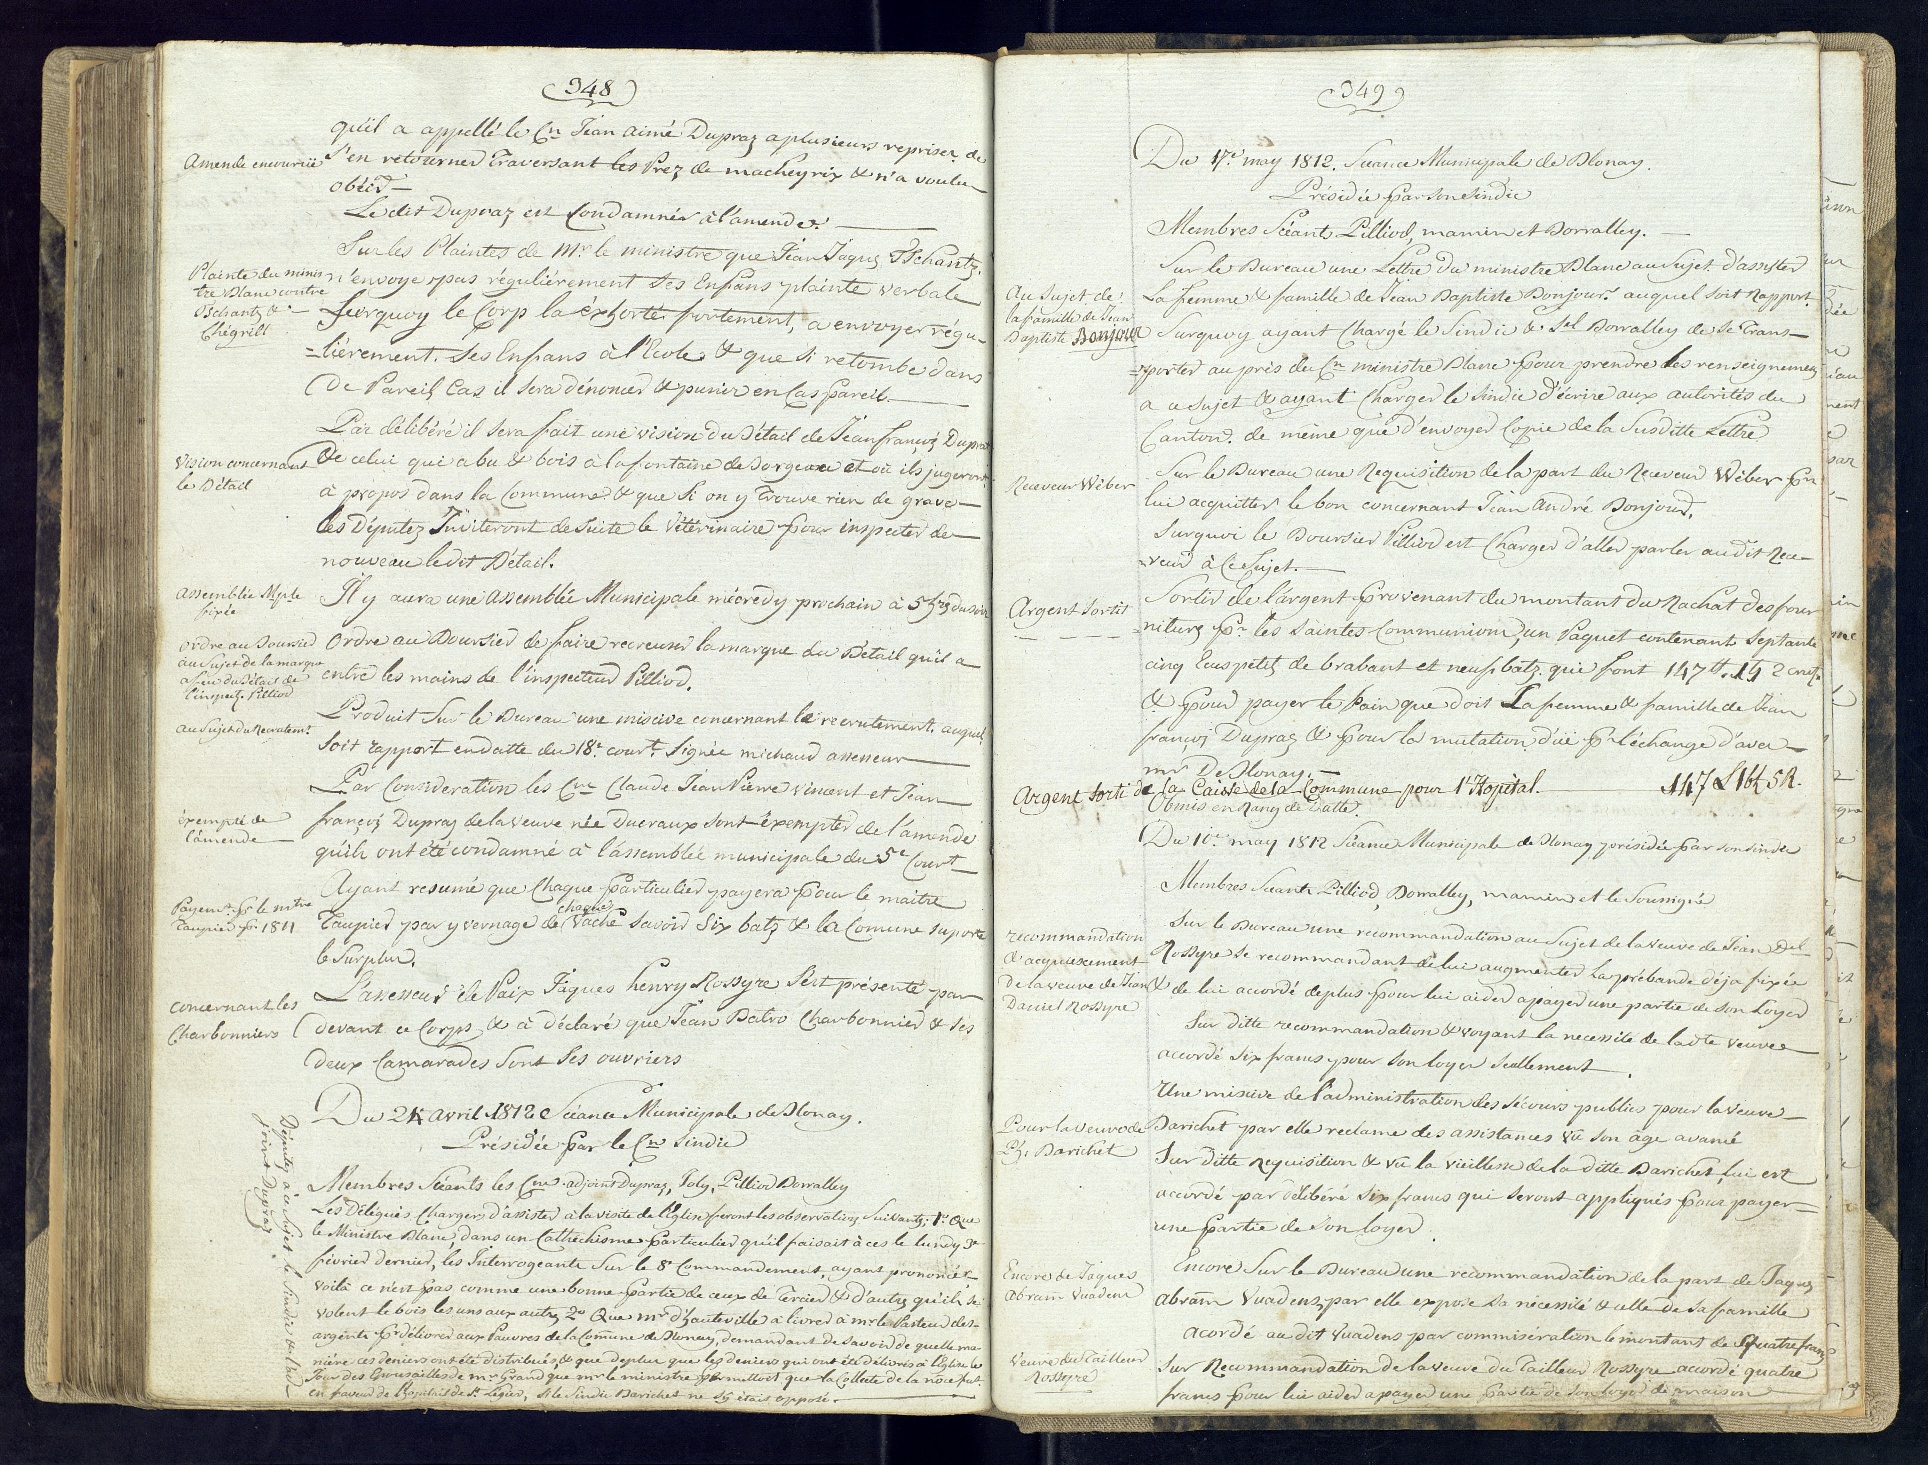 348
qu'il a appellé le Cn Jean aimé Dupraz a plusieurs reprises de
Amende encourrüe
s'en retourner Traversant les Prez de macheyrix & n'a voulu
obéir —
Le dit Dupraz est Condamnér à l'amende. —
Sur les Plaintes de Mr. le ministre que Jean Jaques Tschantz
Plainte du minis
tre Blanc contre
Tschantz de
Chégrill
n'envoye pas réguliérement ses Enfans plainte verbale
Surquoy le Corp la éxhorté fortement, a envoyer régu-
=liérement. ses Enfans à l'Ecole & que si retombe dans
de Pareil Cas il sera dénoncer & punir en Cas pareil. —
Par délibéré il sera fait une vision du Bétail de Jean françois Dupraz
Vision concernant
le Bétail
& de celui qui a bu & bois à la fontaine de Sorgeaux et où ils jugeront
à propos dans la Commune & que si on y Trouve rien de grave —
les Députez Inviteront de suite le Vétérinaire pour inspecter de
nouveau le dit Bétail.
Assemblée Mple
fixée
Il y aura une Assemblée Municipale mécredy prochain à 5 hrs du soir
Ordre au Boursier
au Sujet de la marque
a feu du Bétail de
l'inspect. Pilliod
Ordre au Boursier de faire recreuser la marque du Bétail qu'il a
entre les mains de l'inspecteur Pilliod.
Au Sujet du Recrutemt.
Produit sur le Bureau une miscive concernant le recrutement. auquel
soit rapport en datte du 18e court. Signée michaud assesseur
Par Considération les Cns Claude Jean Pierre Vincent et Jean
éxempté de
l'amende
françois Dupraz de la veuve née Ducraux sont éxempter de l'amende
qu'ils ont été condamné à l'assemblée municipale du 5e Court
Ayant resumé que Chaque particulier payera pour le maitre
Payemt. pr le mtre
Taupier pr 1811
Taupier par yvernage de chaque Vache savoir Six batz & la Comune suporte
le Surplus.
Concernant les
Charbonniers
L'assesseur de Paix Jaques henry Rossyre s'est présenté par
devant ce Corps & à déclaré que Jean Batro Charbonnier & ses
deux Camarades sont ses ouvriers
Du 24 Avril 1812 Séance Municipale de Blonay.
Présidée par le Cn Sindic
Membres Séants les Cns adjoint Dupraz, Joly, Pilliod Borralley
Députez à ce Sujet le Sindic & l'ad
joint Dupraz
Les Délégués Chargers d'assister à la visite de l'Eglise feront les observations Suivants, 1º. Que
le Ministre Blanc, dans un Cathéchisme particulier qu'il faisait à ces le lundy 3e
février dernier, les Interrogeants Sur le 8e Commandement, ayant prononcé
voilà ce n'est pas comme une bonne partie de ceux de Tercier & d'autres qu'ils se
volent le bois les uns aux autres 2º Que mr d'hauteville à livrer à mr le Pasteur des
argents pr délivrer aux Pauvres de la Comune de Blonay, demandant de Savoir de quelle ma
nière ces deniers ont été distribués, & que deplus que les deniers qui ont été délivrés à l'Eglise le
Jour des Epousailles de mr Grand que mr le ministre promettoit que la Collecte de la noce fut
en faveur de l'hopital de St. Legier, si le Sindic Barichet ne s'y étais opposé.
349
Du 17e. may 1812. Séance Municipale de Blonay.
Présidée par son Sindic
Membres Séants Pilliod, mamin et Borralley. —
Sur le Bureau une Lettre du ministre Blanc au Sujet d'assister
Au Sujet de
la famille de Jean
Baptiste Bonjour
La femme & famille de Jean Baptiste Bonjour. auquel soit Rapport.
Surquoy ayant Chargé le Sindic & Sel Borralley de se Trans-
=porter au près du Cn ministre Blanc pour prendre les renseignements
a ce sujet & ayant Charger le Sindic d'écrire aux autorités du
Canton. de même que d'envoyer Copie de la Susditte Lettre
Receveur Wéber
Sur le Bureau une Requisition de la part du Receveur Wéber pr
lui acquitter le bon concernant Jean André Bonjour.
Surquoi le Boursier Pilliod est Charger d'aller parler au dit Rece-
=veur à Ce Sujet. —
Argent Sortit
Sortir de l'argent provenant du montant du Rachat des four
nitures pr. les Saintes Communions, un Paquet contenant Septante
cinq Ecus petits de brabant et neuf batz. qui font 147 . 15 2 cruz.
& pour payer le Pain que doit La femme & famille de Jean
françois Dupraz & pour la mutation düe pr l'échange d'avec
mr De Blonay. —
Argent sorti de la Caisse de la Commune pour l'Hopital. 147 L 16 5 R.
Obmis en Rang de Datte.
Du 10e. may 1812 Séance Municipale de Blonay présidée par son Sindic
Membres Séants Pilliod, Borralley, mamin et le Soussigné
recommandation
& acquiescement
De la veuve de Jean
Daniel Rossyre
Sur le Bureau une recommandation au Sujet de la veuve de Jean Del
Rossyre se recommandant de lui augmenter La prébande déja fixée
& de lui accordé deplus pour lui aider a payer une partie de son Loyer
Sur ditte recommandation & voyant la necessité de ladte veuve
accordé six francs pour son loyer seullement.
Une miscive de l'administration des secours publics pour la veuve
Pour la Veuve de
Ph. Barichet
Barichet par elle reclame des assistances vû son âge avancé
Sur ditte Requisition & vû la vieillesse de la ditte Barichet, lui est
accordé par délibéré Six francs qui seront appliqués pour payer
une partie de son loyer.
Encore de Jaques
Abram Vuadens
Encore Sur le Bureau une recommandation de la part de Jaques
Abram Vuadens, par elle expose sa nécessité & celle de sa famille
acordé au dit Vuadens par commisération le montant de quatre francs
Veuve du Tailleur
Rossyre
Sur Recommandation de la veuve du Tailleur Rossyre accordé quatre
francs pour lui aider a payer une partie de son loyer de maison